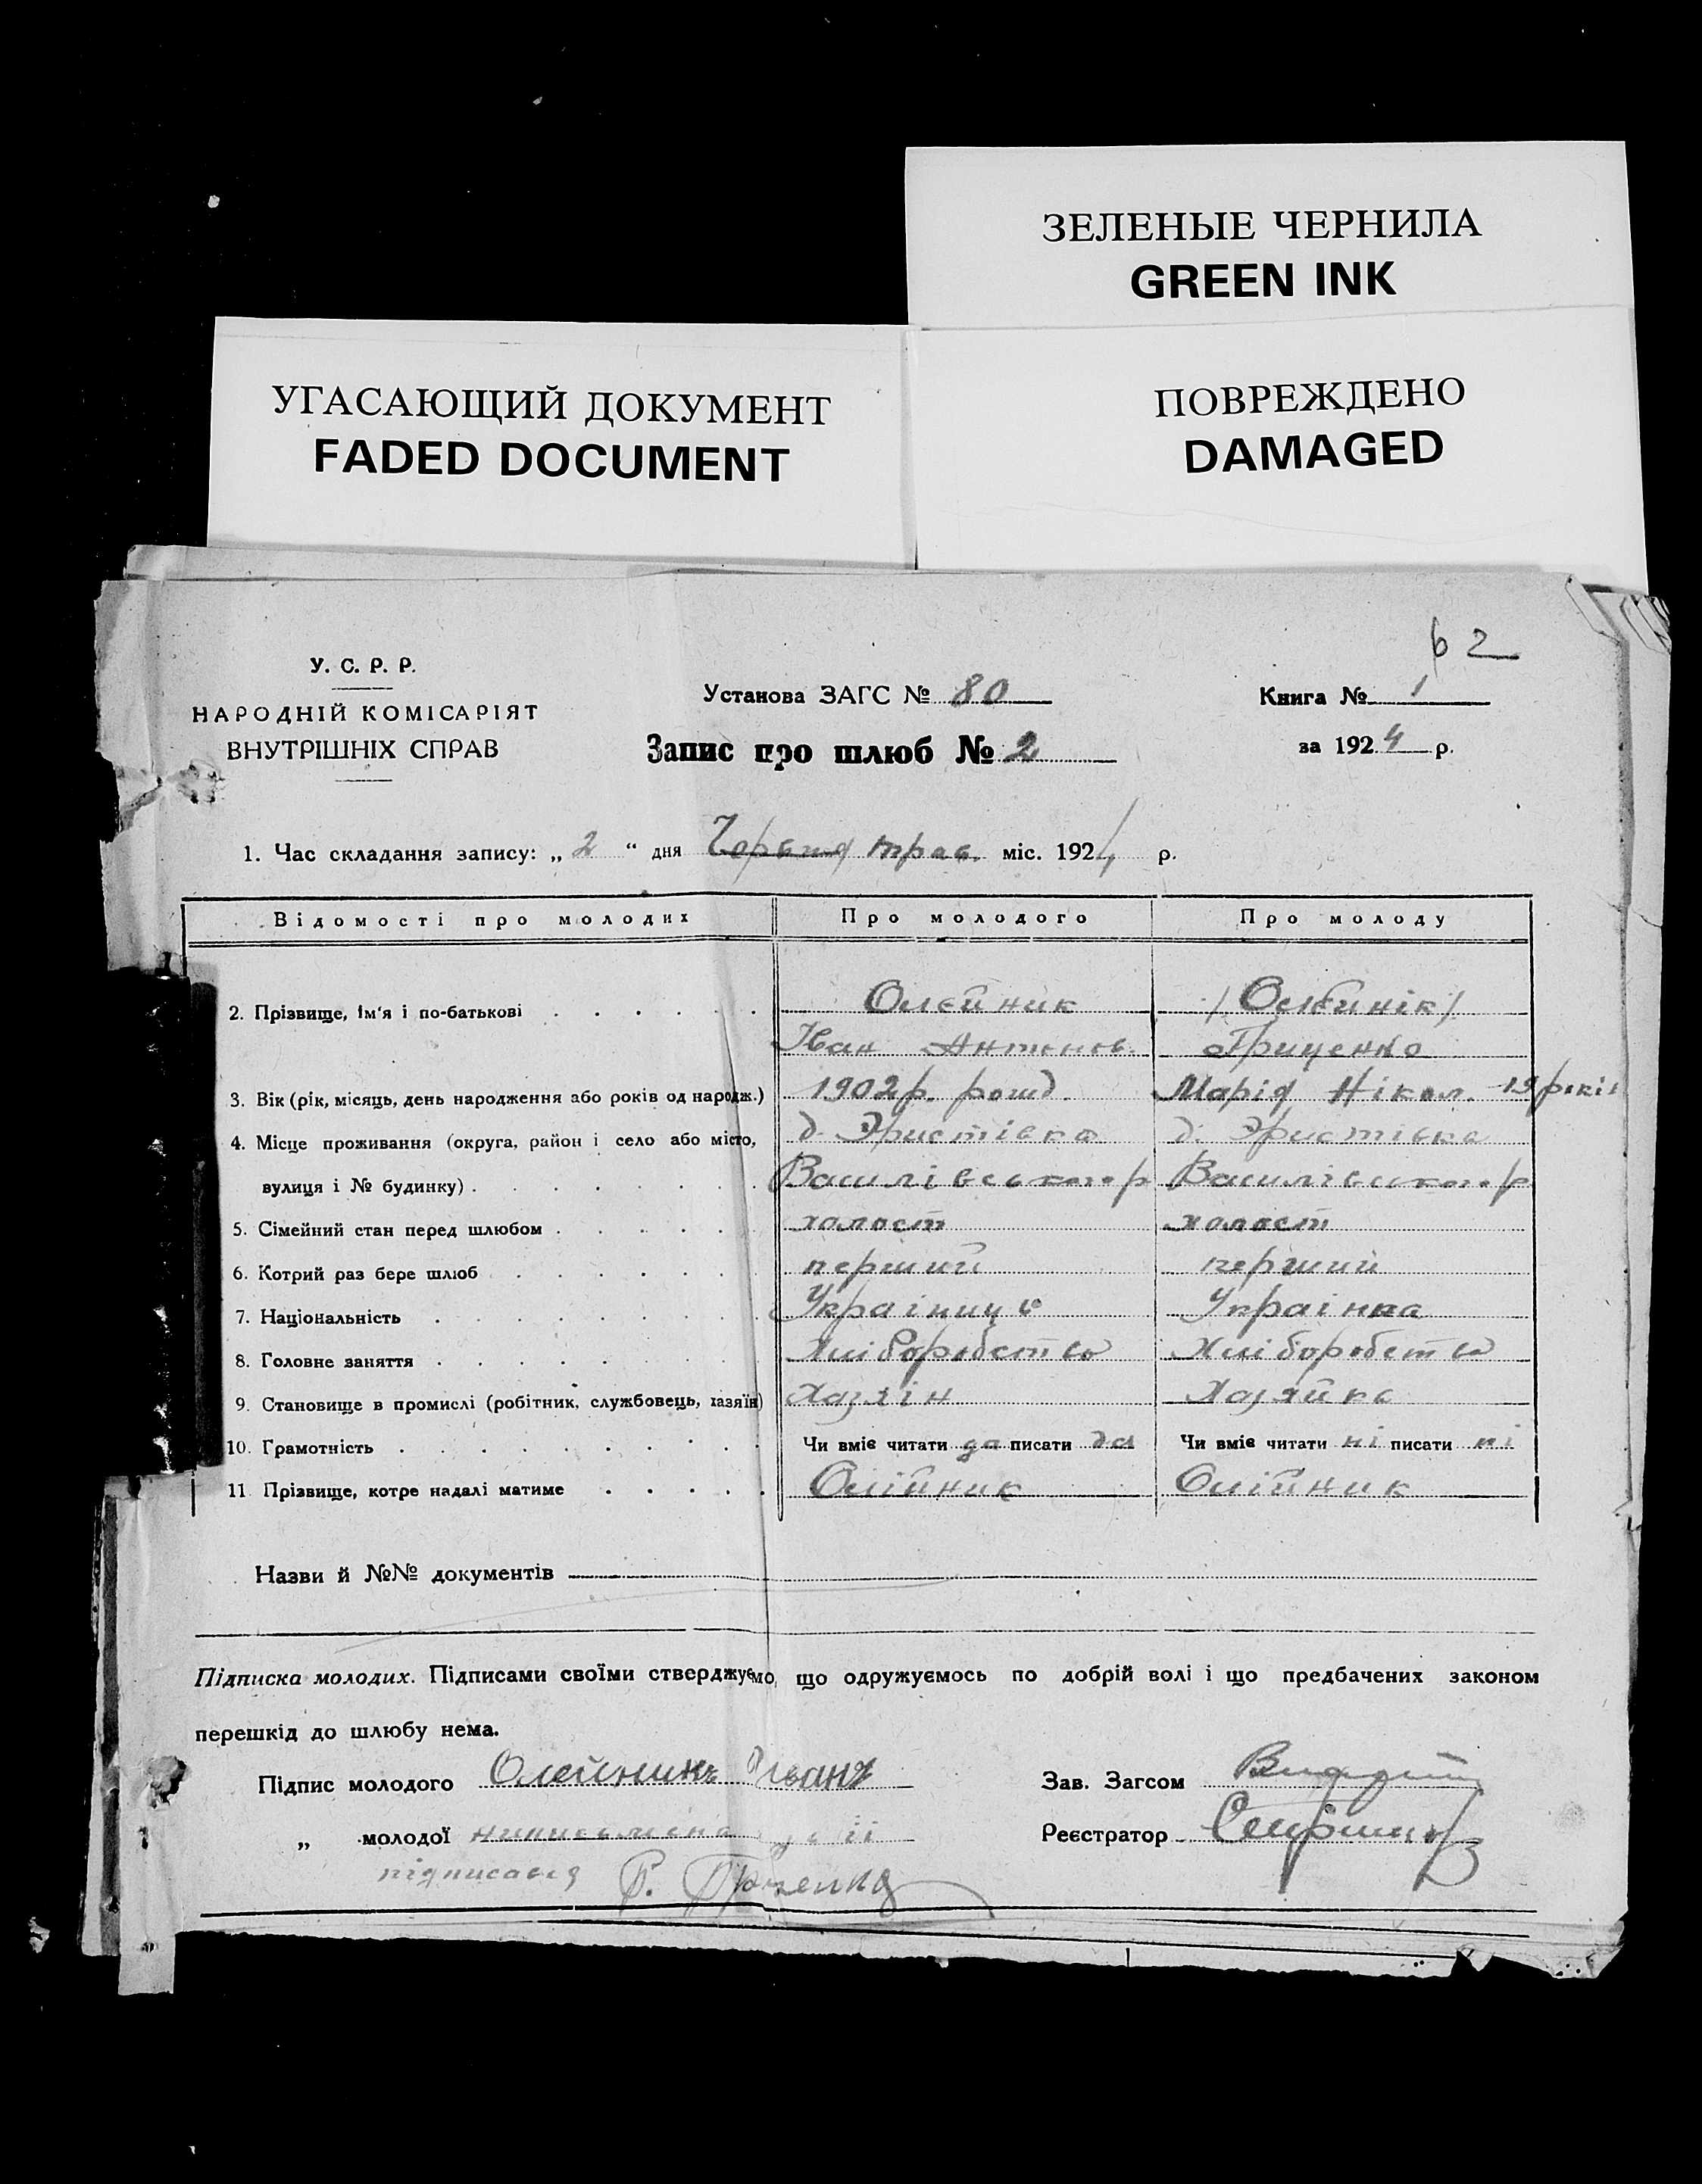 ЗЕЛЕНЫЕ ЧЕРНИЛА
GREEN INK
УГАСАЮЩИЙ ДОКУМЕНТ
FADED DOCUMENT
ПОВРЕЖДЕНО
DAMAGED
62
У. С. Р. Р.
НАРОДНІЙ КОМІСАРІЯТ
ВНУТРІШНІХ СПРАВ
Установа ЗАГС № 80
Запис про шлюб № 2
Книга № 1
за 1924 р.
1. Час складання запису: „ 2 “ дня трав. міс. 1924 р.
Відомості про молодих Про молодого Про молоду
2. Прізвище, ім'я і по-батькові . . . . . . Олєйник /Олєйнік/
Іван Антонов. Гриценко
3. Вік (рік, місяць, день народження або років од народж.) 1902 р. рожд. Марія Нікол. 19 років
4. Місце проживання (округа, район і село або місто, д. Эристівка д. Эристівка
вулиця і № будинку) . . . . . . . Василівського р Василівського р
5. Сімейний стан перед шлюбом . . . . . холост холост
6. Котрий раз бере шлюб . . . . . . перший перший
7. Національність . . . . . . . . Україниць Українка
8. Головне заняття . . . . . . . . Хліборобство Хліборобство
9. Становище в промислі (робітник, службовець, хазяїн) Хазяін Хазяйка
10. Грамотність . . . . . . . . Чи вміє читати да писати да Чи вміє читати ні писати ні
11 Прізвище, котре надалі матиме . . . . . Олійник Олійник
Назви й №№ документів
Підписка молодих. Підписами своїми стверджуємо, що одружуємось по добрій волі і що предбачених законом
перешкід до шлюбу нема.
Підпис молодого Олейникъ Иванъ
Зав. Загсом
„ молодої неписьмена за її
Реєстратор
підписався Г. Гриценко